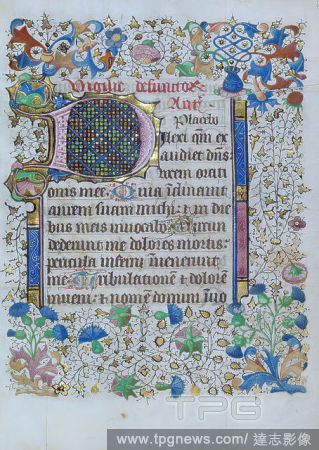 Vigilie defunctor̃
Ant̃
Placebo
Dilexi qm̃ ex
audiet dñs
vocem orati
onis mee. Quia inclinavit
aurem suam michi: et in die
bus meis invocabo. Circum
dederunt me dolores mortis:
pericula inferni invenerunt
me. Tribulationẽ et dolorẽ
inveni: et nomen domini invo
TPG
www.tpgnews.com/ 達志影像